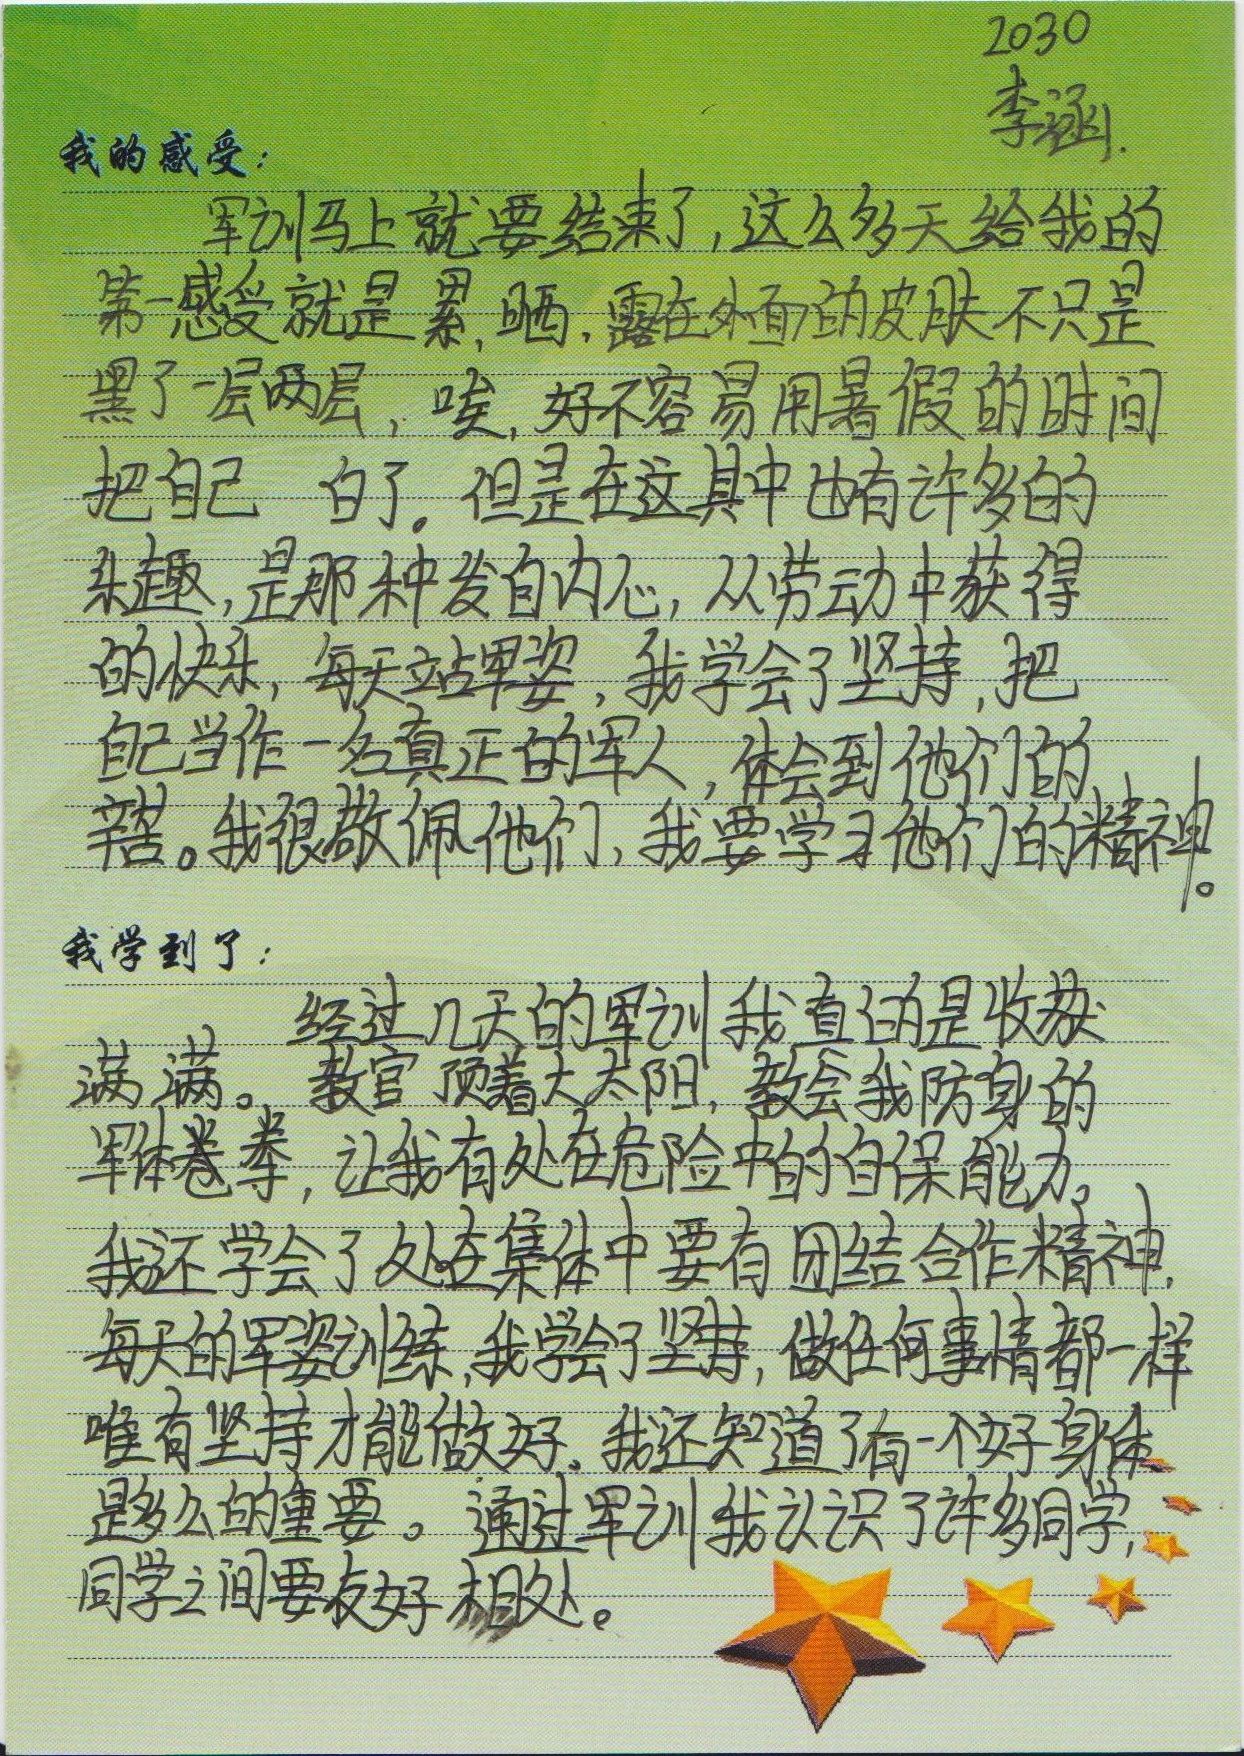 2030
李涵.
我的感受：
军训马上就要结束了，这么多天给我的
第一感受就是累，晒，露在外面的皮肤不只是
黑了一层两层，唉，好不容易用暑假的时间
把自己 白了。但是在这其中也有许多的
乐趣，是那种发自内心，从劳动中获得
的快乐，每天站军姿，我学会了坚持，把
自己当作一名真正的军人，体会到他们的
辛苦。我很敬佩他们，我要学习他们的精神。
我学到了：
经过几天的军训我真的是收获
满满。教官顶着大太阳，教会我防身的
军体拳，让我有处在危险中的自保能力。
我还学会了处在集体中要有团结合作精神，
每天的军姿训练，我学会了坚持，做任何事情都一样
唯有坚持才能做好。我还知道了有一个好身体
是多么的重要。通过军训我认识了许多同学，
同学之间要友好相处。